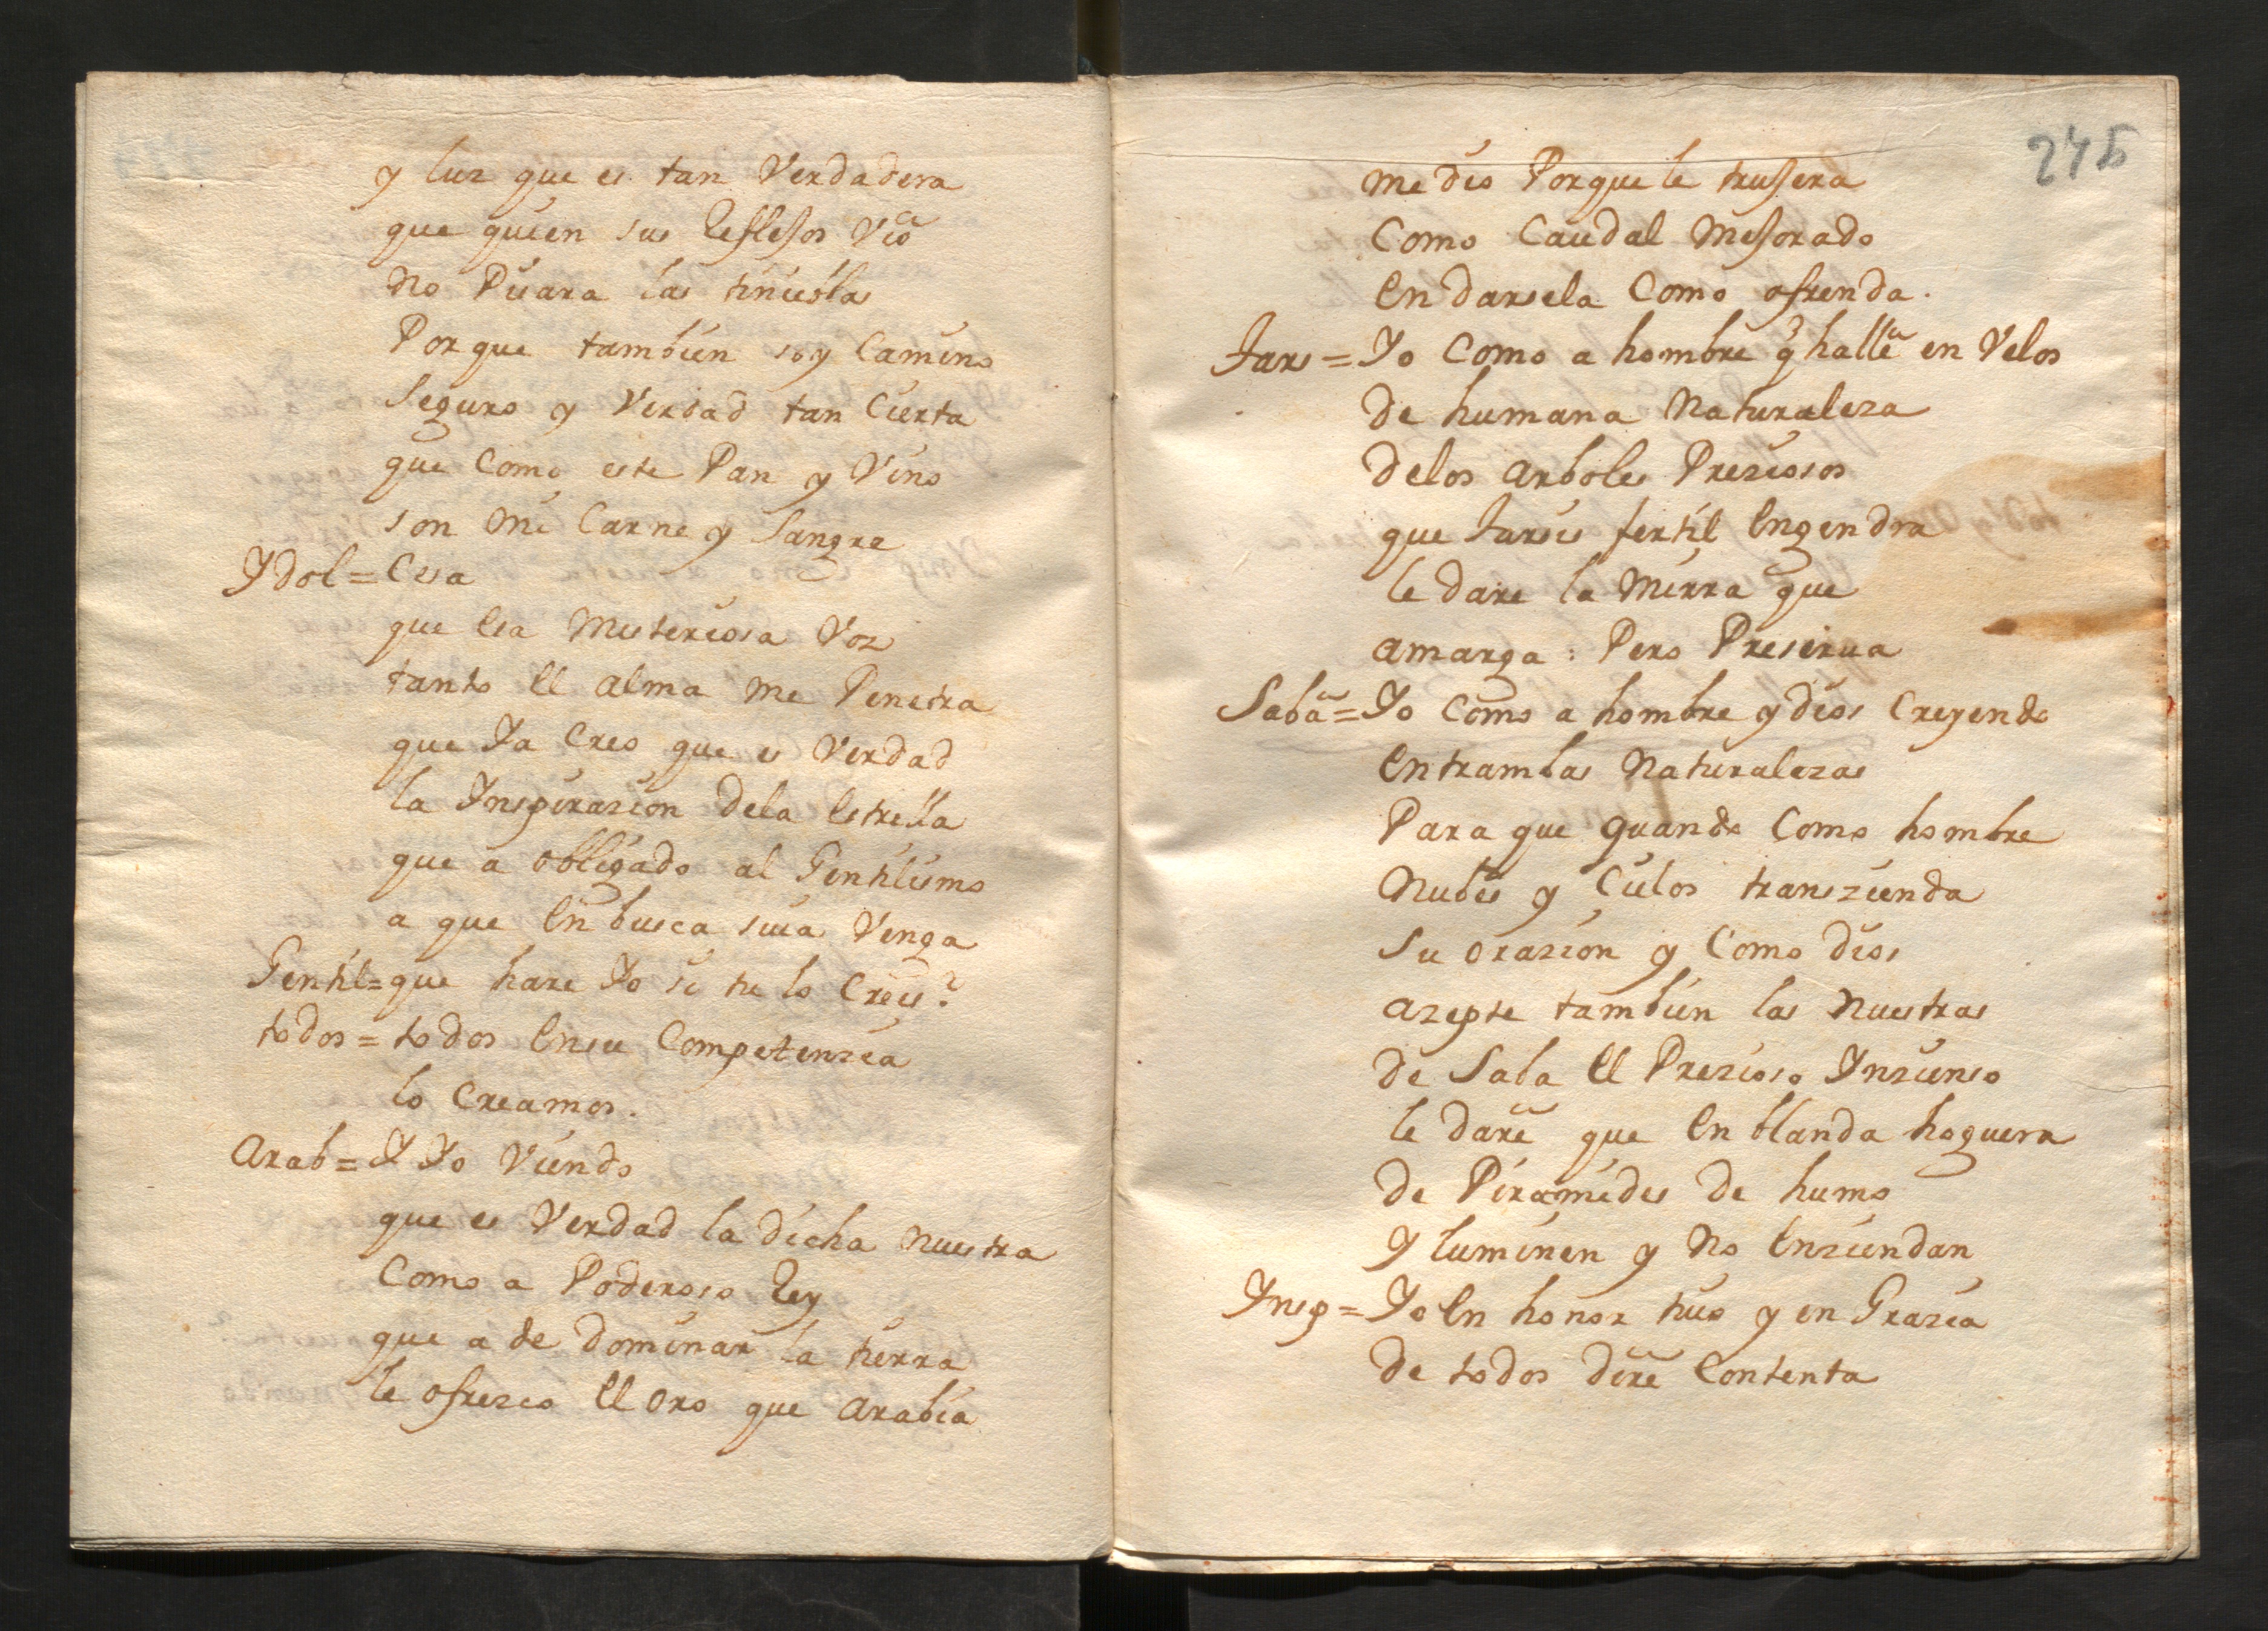 y luz que es tan Verdadera
que quien sus Reflesos Viò
no Pisara las tinieblas
Porque tambien soy Camino
Seguro y Verdad tan Cierta
que Como este Pan y Vino
son mi Carne y Sangre
Ydol = Cesa
que esa Misteriosa Voz
tanto el alma me Penetra
que Ya Creo que es Verdad
la Ynspirazion dela estrella
que a obligado al Gentilismo
a que en busca suia Venga
Gentil = que hare Yo si tu lo Crees?
todos = todos ensu Competenzia
lo Creamos.
Arab = Y Yo Viendo
que es Verdad la dicha nuestra
Como a Poderoso Rey
que a de dominar la tierra
le ofrezco el oro que Arabia
245
me dio Porque le trusera
Como Caudal Mesorado
en darsela Como ofrenda.
Tars = Yo Como a hombre q̃ hallè en Velos
de humana Naturaleza
delos arboles Preziosos
que Tarsis fertil engendra
le dare la Mirra que
amarga: Pero Preserua
Sabà = Yo Como a hombre y dios Creyendo
entrambas Naturalezas
Para que quando Como hombre
Nubes y Cielos transzienda
su orazion y Como dios
azepte tambien las Nuestras
de Saba el Prezioso Ynzienso
le darè que en blanda hoguera
de Piramides de humo
Y luminen y No enziendan
Ynsp = Yo en honor tuio y en Grazia
de todos dirè Contenta